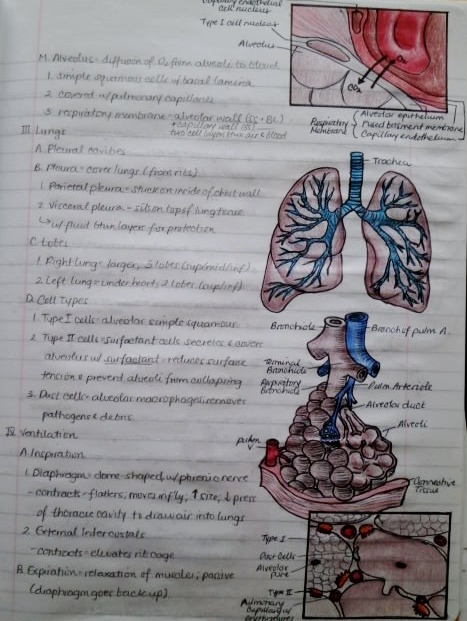 Capillary endothelial
cell nucleus
Type I cell nucleus
Alveolus
O₂
CO₂
Respiratory
Membrane
Alveolar epithelium
Fused basment membrane
Capillary endothelium
M. Alveolus - diffusion of O₂ from alveole to blood
1. simple squamous cells w/ basal lamina
2. covered w/ pulmonary capillaries
3. respiratory membrane - alveolar wall (SS + BL)
+ capillary wall (SS)
two cell layers btwn air & blood
III. Lungs
A. Pleural cavities
B. Pleura - cover lungs (from ribs)
1. Parietal pleura - stuck on inside of chest wall
2. Visceral pleura - sits on top of lung tissue
↳ w/ fluid btwn layers for protection
C. Lobes
1. Right lung - larger, 3 lobes (sup/mid/inf)
2. Left lung - under heart, 2 lobes (sup/inf)
D. Cell Types
1. Type I cells - alveolar simple squamous
2. Type II cells - surfactant cells secretes & covers
alveolus w/ surfactant - reduces surface
tension & prevent alveoli from collapsing
3. Dust cells - alveolar macrophages removes
pathogens & debris.
IV. Ventilation
A. Inspiration
1. Diaphragm - dome-shaped, w/ phrenic nerve
- contracts - flattens, moves infly, ↑ size, ↓ press
of thoracic cavity to draw air into lungs
2. External Intercostals
- contracts - elevates ribcage
B. Expiration - relaxation of muscles, passive
(diaphragm goes back up)
Trachea
Bronchiole
Branch of pulm A.
Terminal
Bronchiole
Respiratory
Bronchiole
Pulm Arteriole
Alveolar duct
Alveoli
pulm
Connective
Tissue
Type I
Dust Cells
Alveolar
pore
Type II
Pulmonary
Capillary w/
erythrocytes